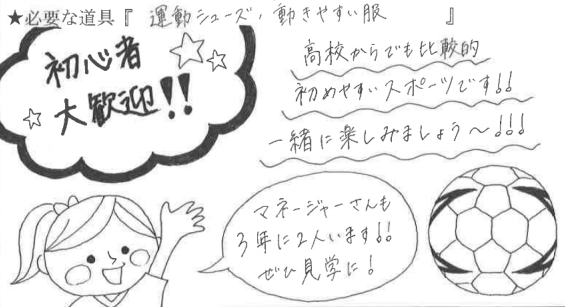 ★必要な道具『 運動シューズ、動きやすい服 』
初心者
大歓迎!!
高校からでも比較的
初めやすいスポーツです!!
一緒に楽しみましょう〜!!!
マネージャーさんも
3年に2人います!!
ぜひ見学に!